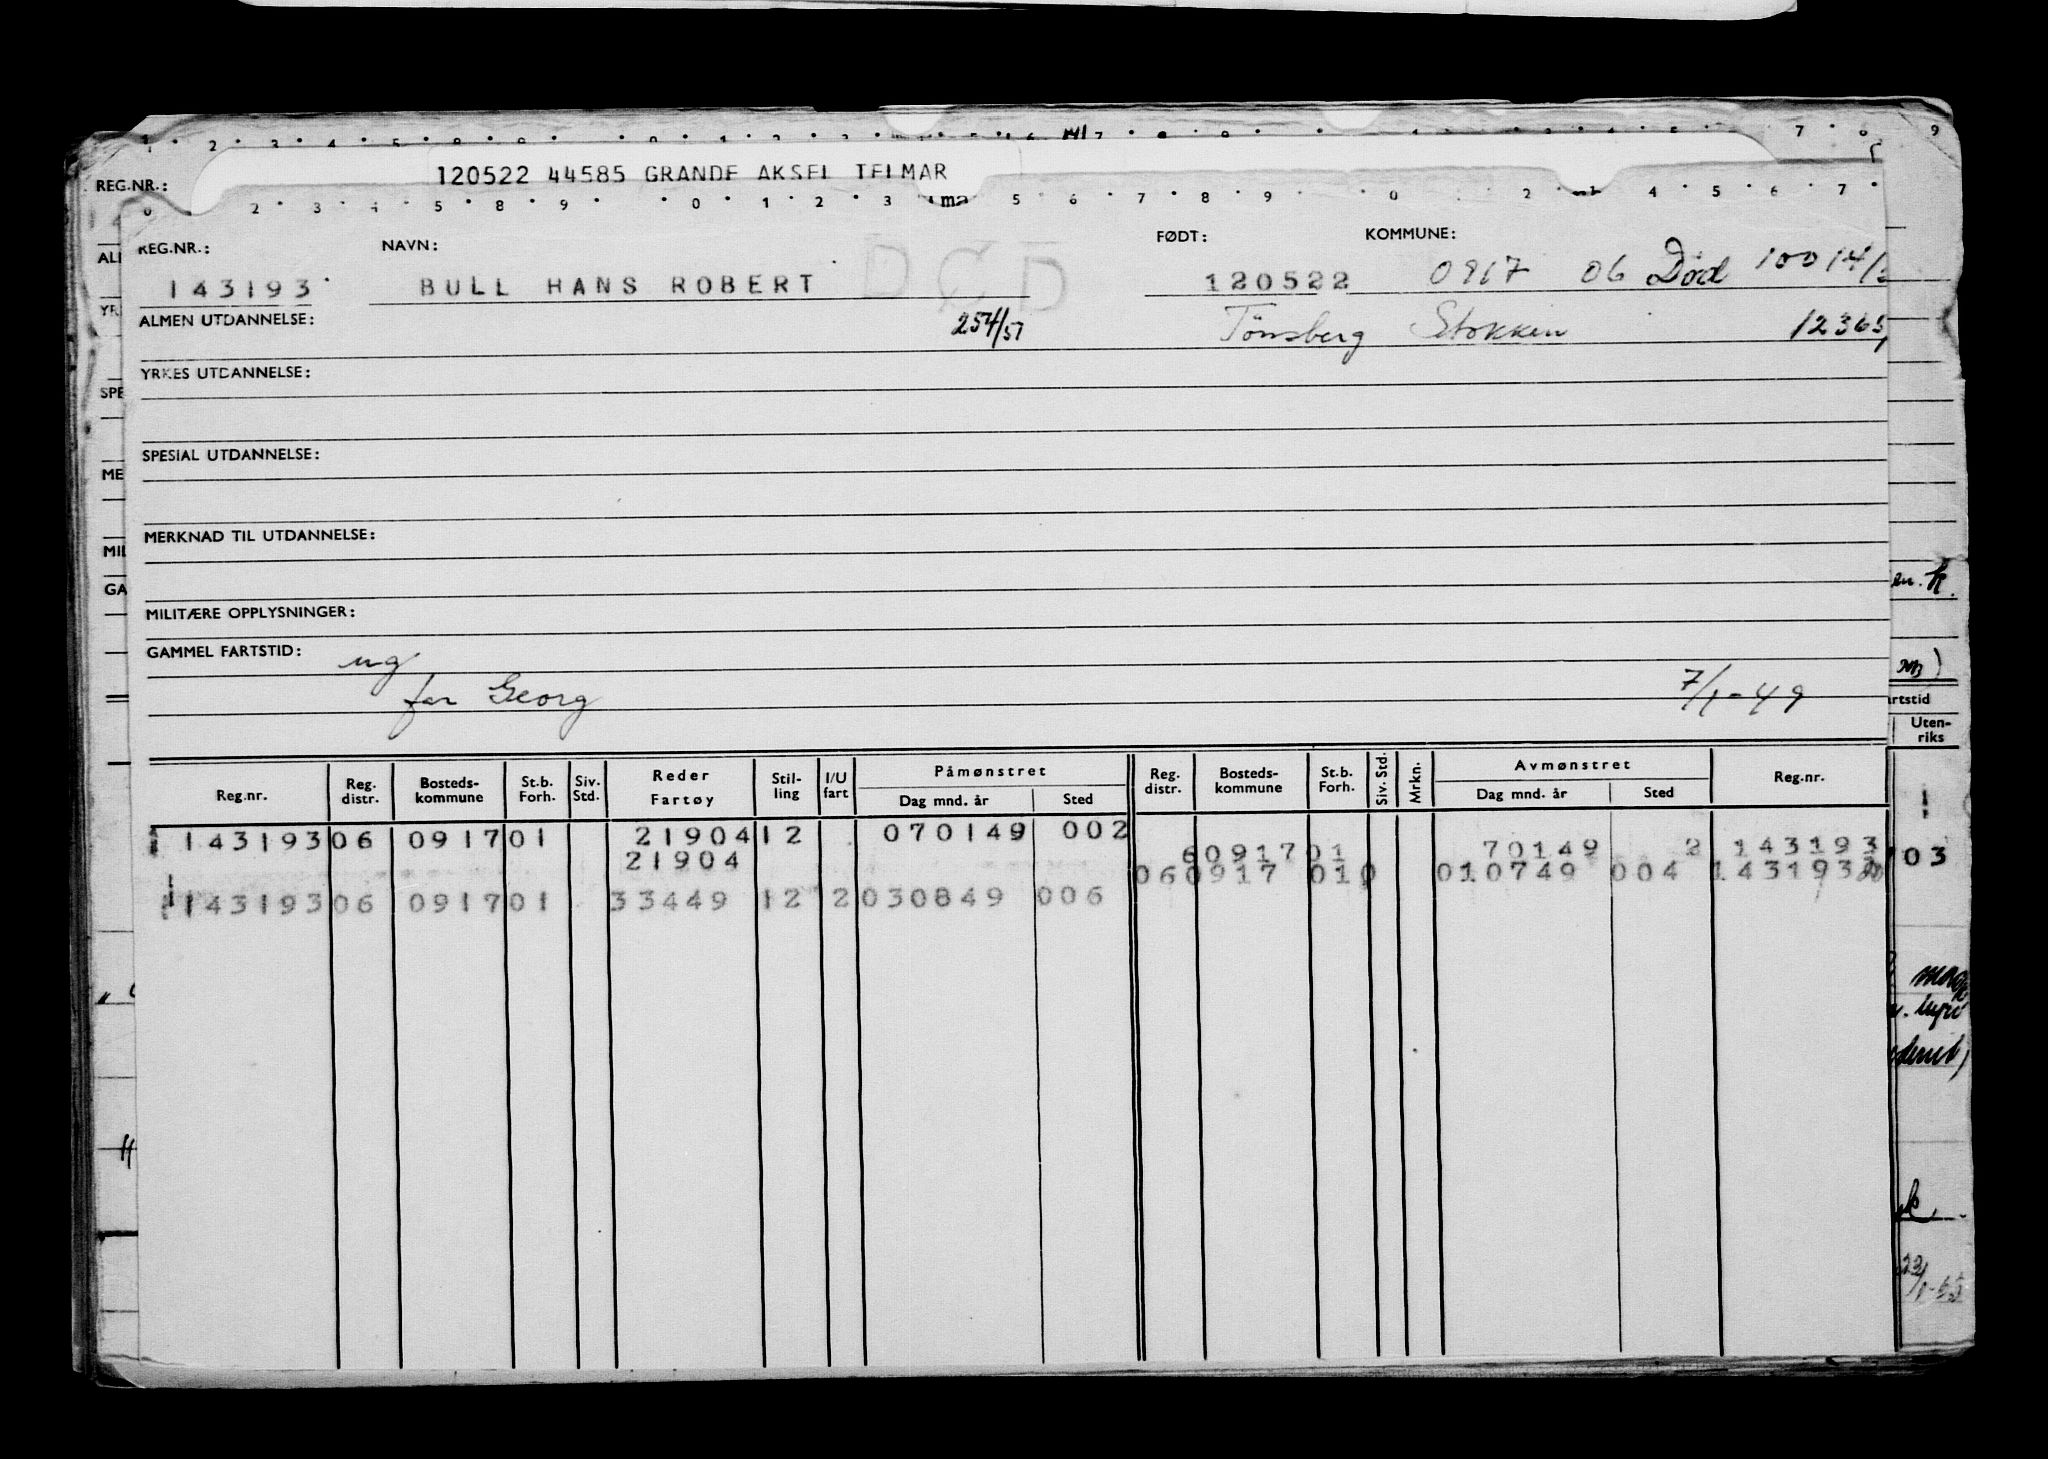 120522 44585 GRANDE AKSEL TELMAR
REG.NR.:
REG.NR.: NAVN: FØDT: KOMMUNE:
143193 BULL HANS ROBERT DØD 120522 0917 06 Død
ALMEN UTDANNELSE: 254/51 Tönsberg Stokken
YRKES UTDANNELSE:
SPESIAL UTDANNELSE:
MERKNAD TIL UTDANNELSE:
MILITÆRE OPPLYSNINGER:
GAMMEL FARTSTID: ug
far Georg 7/1-49
Reg.nr. Reg. distr. Bosteds-kommune St.b. Forh. Siv. Std. Reder Fartøy Stil-ling I/U fart Påmønstret Dag mnd. år Sted Reg. distr. Bosteds-kommune St.b. Forh. Siv. Std. Mrkn. Avmønstret Dag mnd. år Sted Reg.nr.
143193 06 0917 01 21904 12 070149 002
6 0917 01 70149 2 143193
21904
06 0917 010 010749 004 143193
143193 06 0917 01 33449 12 2 030849 006
artstid
Uten-riks
03